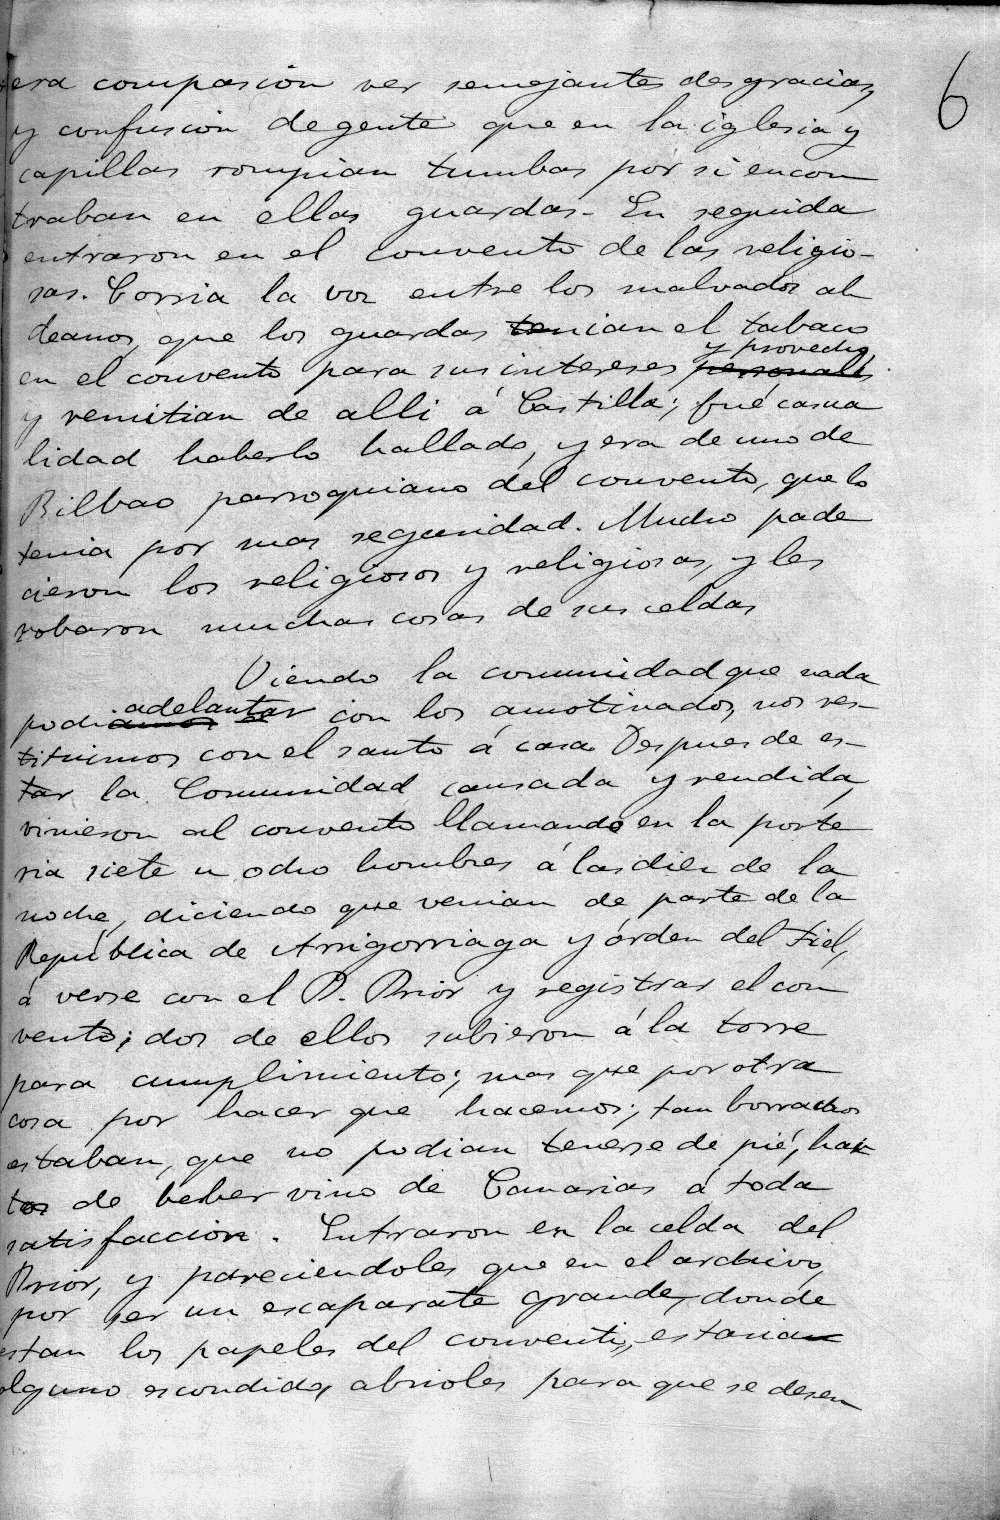 6
era compasion ver semejantes desgracias,
y confusion de gente que en la iglesia y
capillas rompian tumbas por si encon
traban en ellas guardas - En seguida
entraron en el convento de las religio-
sas. Corria la voz entre los malvados al
deanos, que los guardas tenian el tabaco
y provecho
en el convento para sus intereses personales
y remitian de alli á Castilla; fué casua
lidad haberlo hallado, y era de uno de
Bilbao parroquiano del convento, que lo
tenia por mas seguridad. Mucho pade
cieron los religiosos y religiosas, y les
robaron muchas cosas de sus celdas
Viendo la comunidad que nada
adelantar
podiamos con los amotinados, nos res-
tituimos con el santo á casa Despues de es-
tar la Comunidad cansada y rendida,
vinieron al convento llamando en la porte
ria siete u ocho hombres á las diez de la
noche, diciendo que venian de parte de la
República de Arrigorriaga y órden del Fiel,
á verse con el P. Prior y registrar el con
vento; dos de ellos subieron á la torre
para cumplimiento; mas que por otra
cosa por hacer que hacemos; tan borrachos
estaban, que no podian tenerse de pié, har
tos de beber vino de Canarias á toda
satisfaccion. Entraron en la celda del
Prior, y pareciendoles que en el archivo,
por ser un escaparate grande, donde
estan los papeles del convento, estaria
alguno escondido, abrioles para que se desen